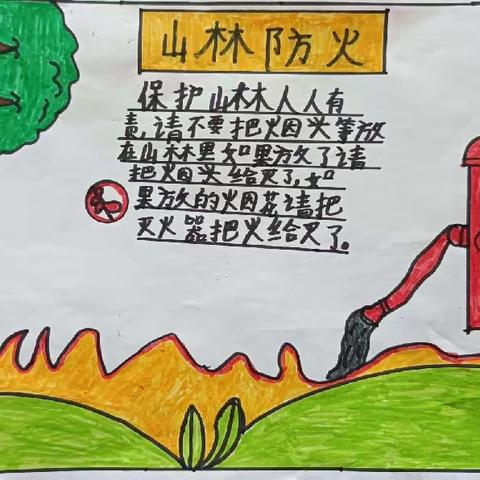 山林防火
保护山林人人有
责,请不要把烟头等放
在山林里如果放了请
把烟头给灭了,如
果放的烟花请把
灭火器把火给灭了。